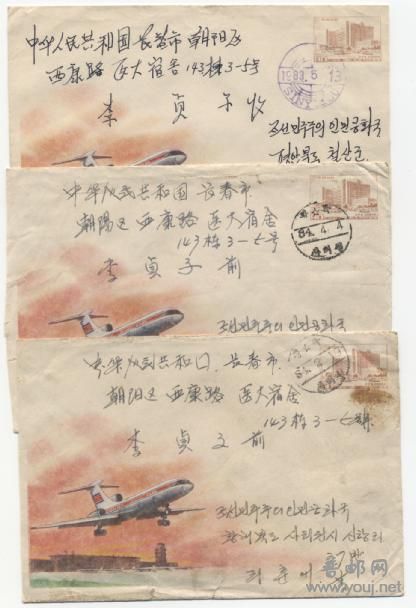 中华人民共和国 长春市 朝阳区
西康路 医大宿舍 143栋3-5号
李 贞 子 收
1983.5.13
조선민주주의 인민공화국
평안북도 철산군
中华人民共和国 长春市
朝阳区 西康路 医大宿舍
143栋3-5号
李 贞 子 前
84.4.4
조선민주주의 인민공화국
中华人民共和国 长春市
朝阳区 西康路 医大宿舍
143栋3-5号
李 贞 子 前
84
조선민주주의 인민공화국
황해북도 사리원시 신양리
www.youj.net